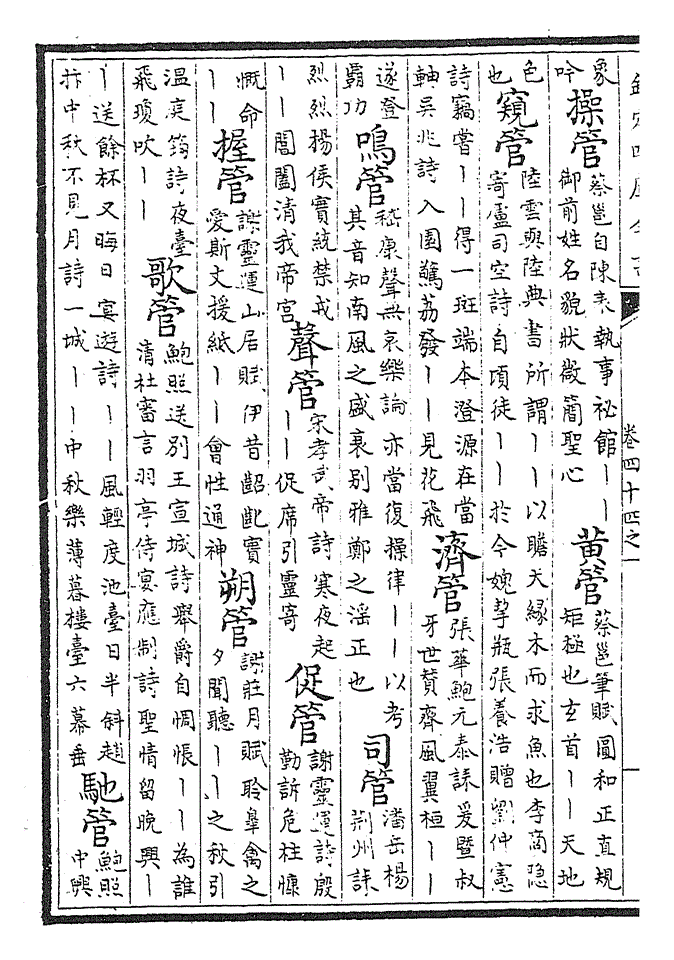 卷四十四之一
象
吟
操管
蔡邕自陳表執事祕館丨丨
御前姓名貌狀微簡聖心
黄管
蔡邕筆賦圓和正直規
矩極也玄首丨丨天地
色
也
窺管
陸雲與陸典書所謂丨丨以瞻天緣木而求魚也李商隱
寄盧司空詩自頃徒丨丨於今婉挈瓶張養浩贈劉仲憲
詩竊嘗丨丨得一斑端本澄源在當
軸吳兆詩入園驚荔發丨丨見花飛
濟管
張華鮑元泰誄爰暨叔
牙世贊齊風翼桓丨丨
遂登
霸功
鳴管
嵇康聲無哀樂論亦當復操律丨丨以考
其音知南風之盛衰别雅鄭之淫正也
司管
潘岳楊
荆州誄
烈烈揚侯實統禁戎
丨丨閶闔清我帝宮
聲管
宋孝武帝詩寒夜起
丨丨促席引靈寄
促管
謝靈運詩殷
勤訴危柱慷
慨命
丨丨
握管
謝靈運山居賦伊昔齠齔實
愛斯文援紙丨丨會性通神
朔管
謝莊月賦聆臯禽之
夕聞聽丨丨之秋引
温庭筠詩夜臺
飛瓊吹丨丨
歌管
鮑照送别王宣城詩舉爵自惆悵丨丨為誰
清杜審言羽亭侍宴應制詩聖情留晚興丨
丨送餘杯又晦日宴遊詩丨丨風輕度池臺日半斜趙
抃中秋不見月詩一城丨丨中秋樂薄暮樓臺六幕垂
馳管
鮑照
中興